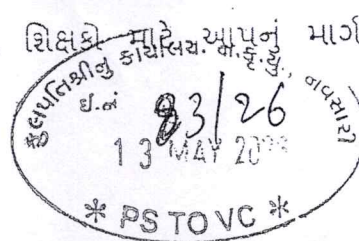 શિક્ષકો માટે આપનું માર્ગ
કુલપતિશ્રીનું કાર્યાલય. ન.કૃ.યુ., નવસારી
ઇ.નં 83/26
13 MAY
* PS TO VC *